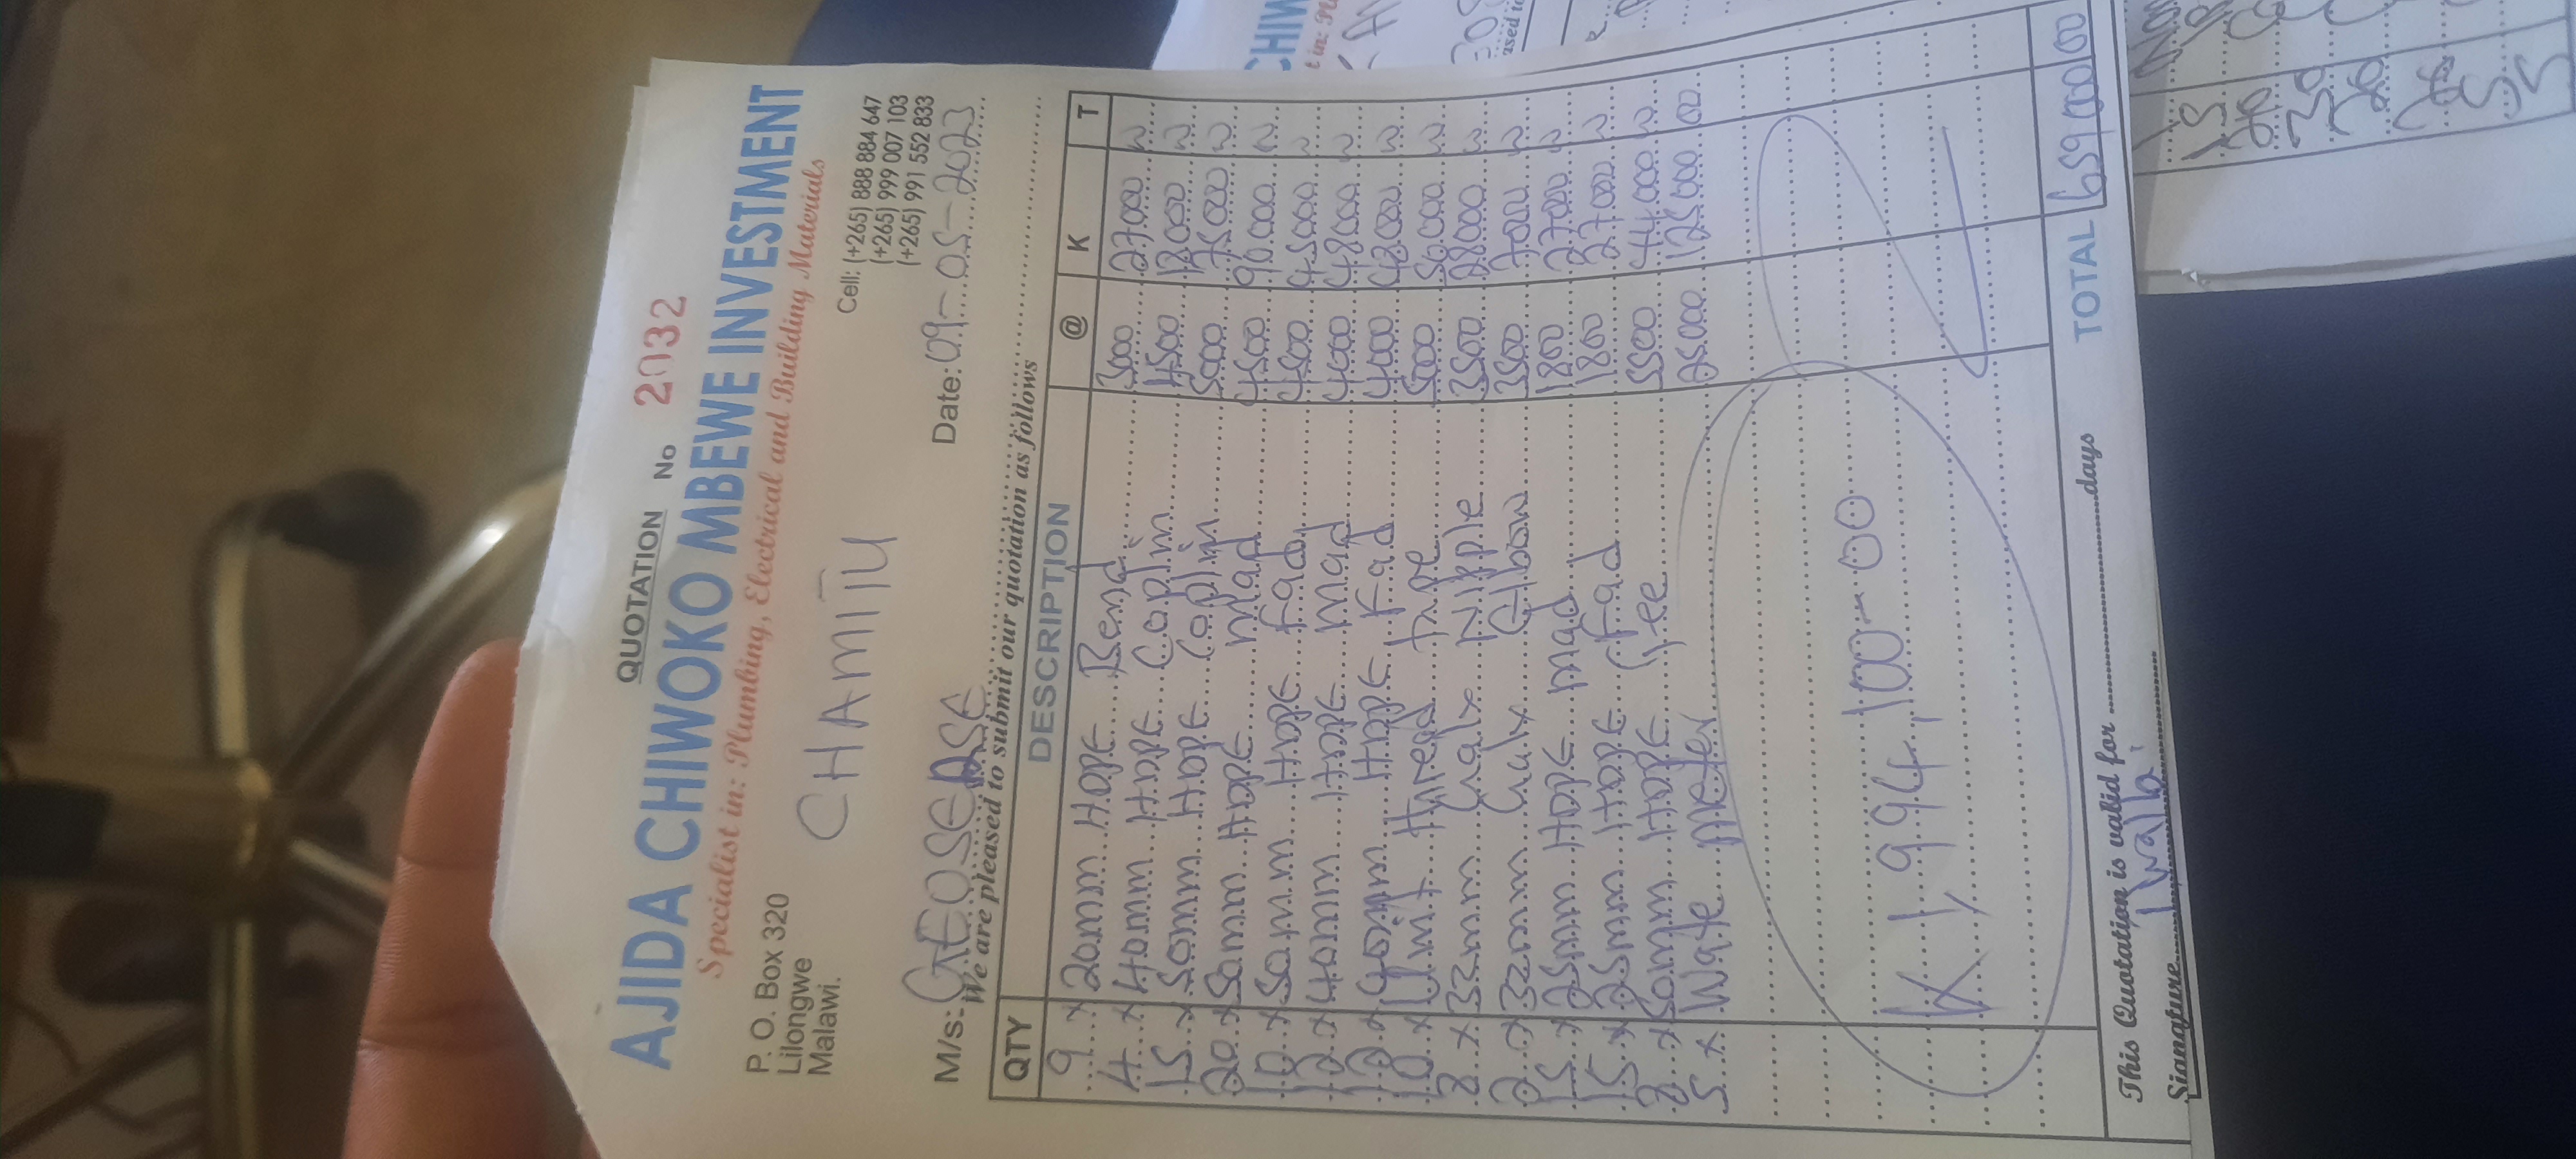 QUOTATION No 2032
AJIDA CHIWOKO MBEWE INVESTMENT
Specialist in: Plumbing, Electrical and Building Materials
P. O. Box 320
Lilongwe
Malawi.
CHAMITU
Cell: (+265) 888 884 647
(+265) 999 007 103
(+265) 991 552 833
M/s: GEOSENSE Date: 09-05-2023
We are pleased to submit our quotation as follows
QTY DESCRIPTION @ K T
9 x 20mm HDPE Bend 3000 27000 00
4 x 40mm HDPE Coplin 4500 18000 00
15 x 50mm HDPE Coplin 5000 75000 00
20 x 50mm HDPE mad 4500 90.000 00
10 x 50mm HDPE Fad 4500 45000 00
12 x 40mm HDPE mad 4000 48000 00
12 x 40mm HDPE Fad 4000 48000 00
10 x Unit thread tape 5000 50.000 00
8 x 32mm Galv Nipple 3500 28000 00
2 x 32mm Galv Elbow 3500 7000 00
15 x 25mm HDPE mad 1800 27000 00
15 x 25mm HDPE Fad 1800 27000 00
8 x 50mm HDPE Tee 5500 44.000 00
5 x Wate meter 25.000 125.000 00
K 1,994,100-00
TOTAL 659000 00
This Quotation is valid for days
Signature
CHIW